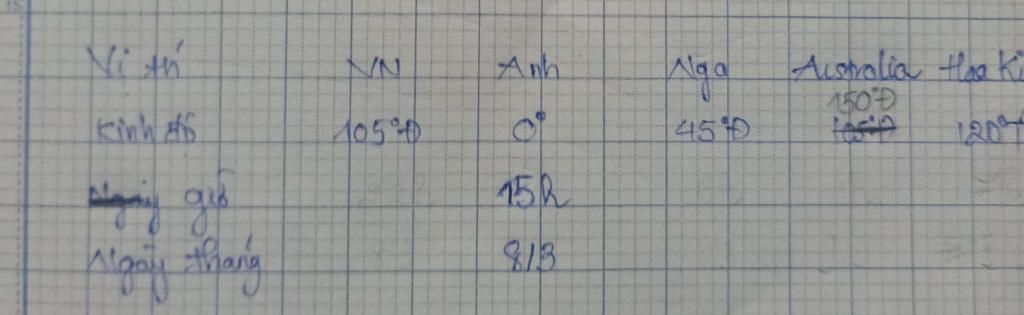 Vị trí VN Anh Nga Australia Hoa Kì
150°Đ
Kinh độ 105°Đ 0° 45°Đ 120°T
giờ 15h
Ngày tháng 8/3